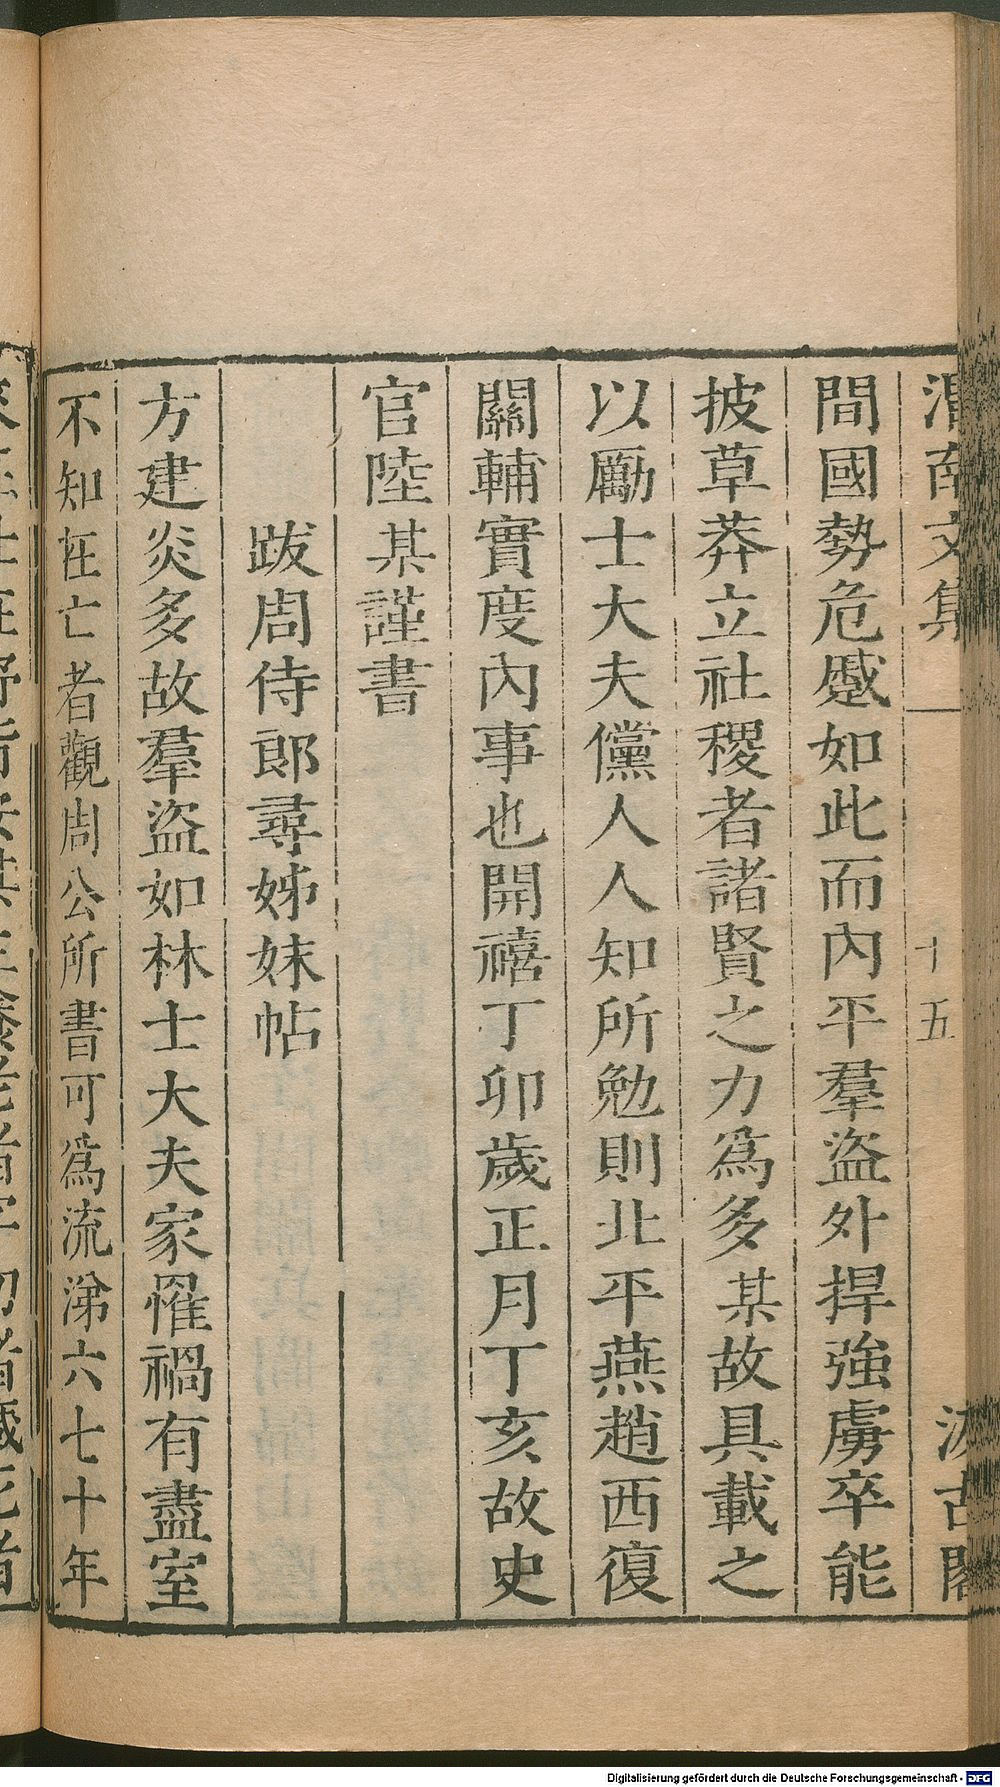 渭南文集 十五 汲古閣
間國勢危蹙如此而內平羣盜外捍強虜卒能
披草莽立社稷者諸賢之力爲多某故具載之
以勵士大夫儻人人知所勉則北平燕趙西復
關輔實度內事也開禧丁卯歲正月丁亥故史
官陸某謹書
跋周侍郎尋姊妹帖
方建炎多故羣盜如林士大夫家罹禍有盡室
不知在亡者觀周公所書可爲流涕六七十年
Digitalisierung gefördert durch die Deutsche Forschungsgemeinschaft - DFG